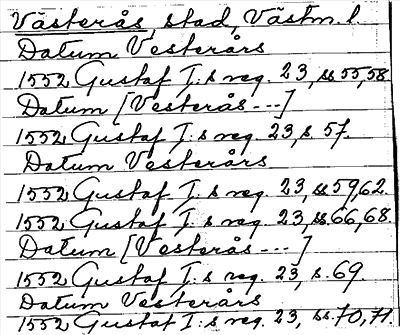 Västerås, stad, Västm. l.
Datum Vesterårs
1552 Gustaf I:s reg. 23, ss 55,58
Datum [Vesterås---]
1552 Gustaf I:s reg. 23, s 57.
Datum Vesterårs
1552 Gustaf I:s reg. 23, ss 59,62.
1552 Gustaf I:s reg. 23, ss. 66,68.
Datum [Vesterås---]
1552 Gustaf I:s reg. 23, s. 69.
Datum Vesterårs
1552 Gustaf I:s reg. 23, ss. 70, 71.